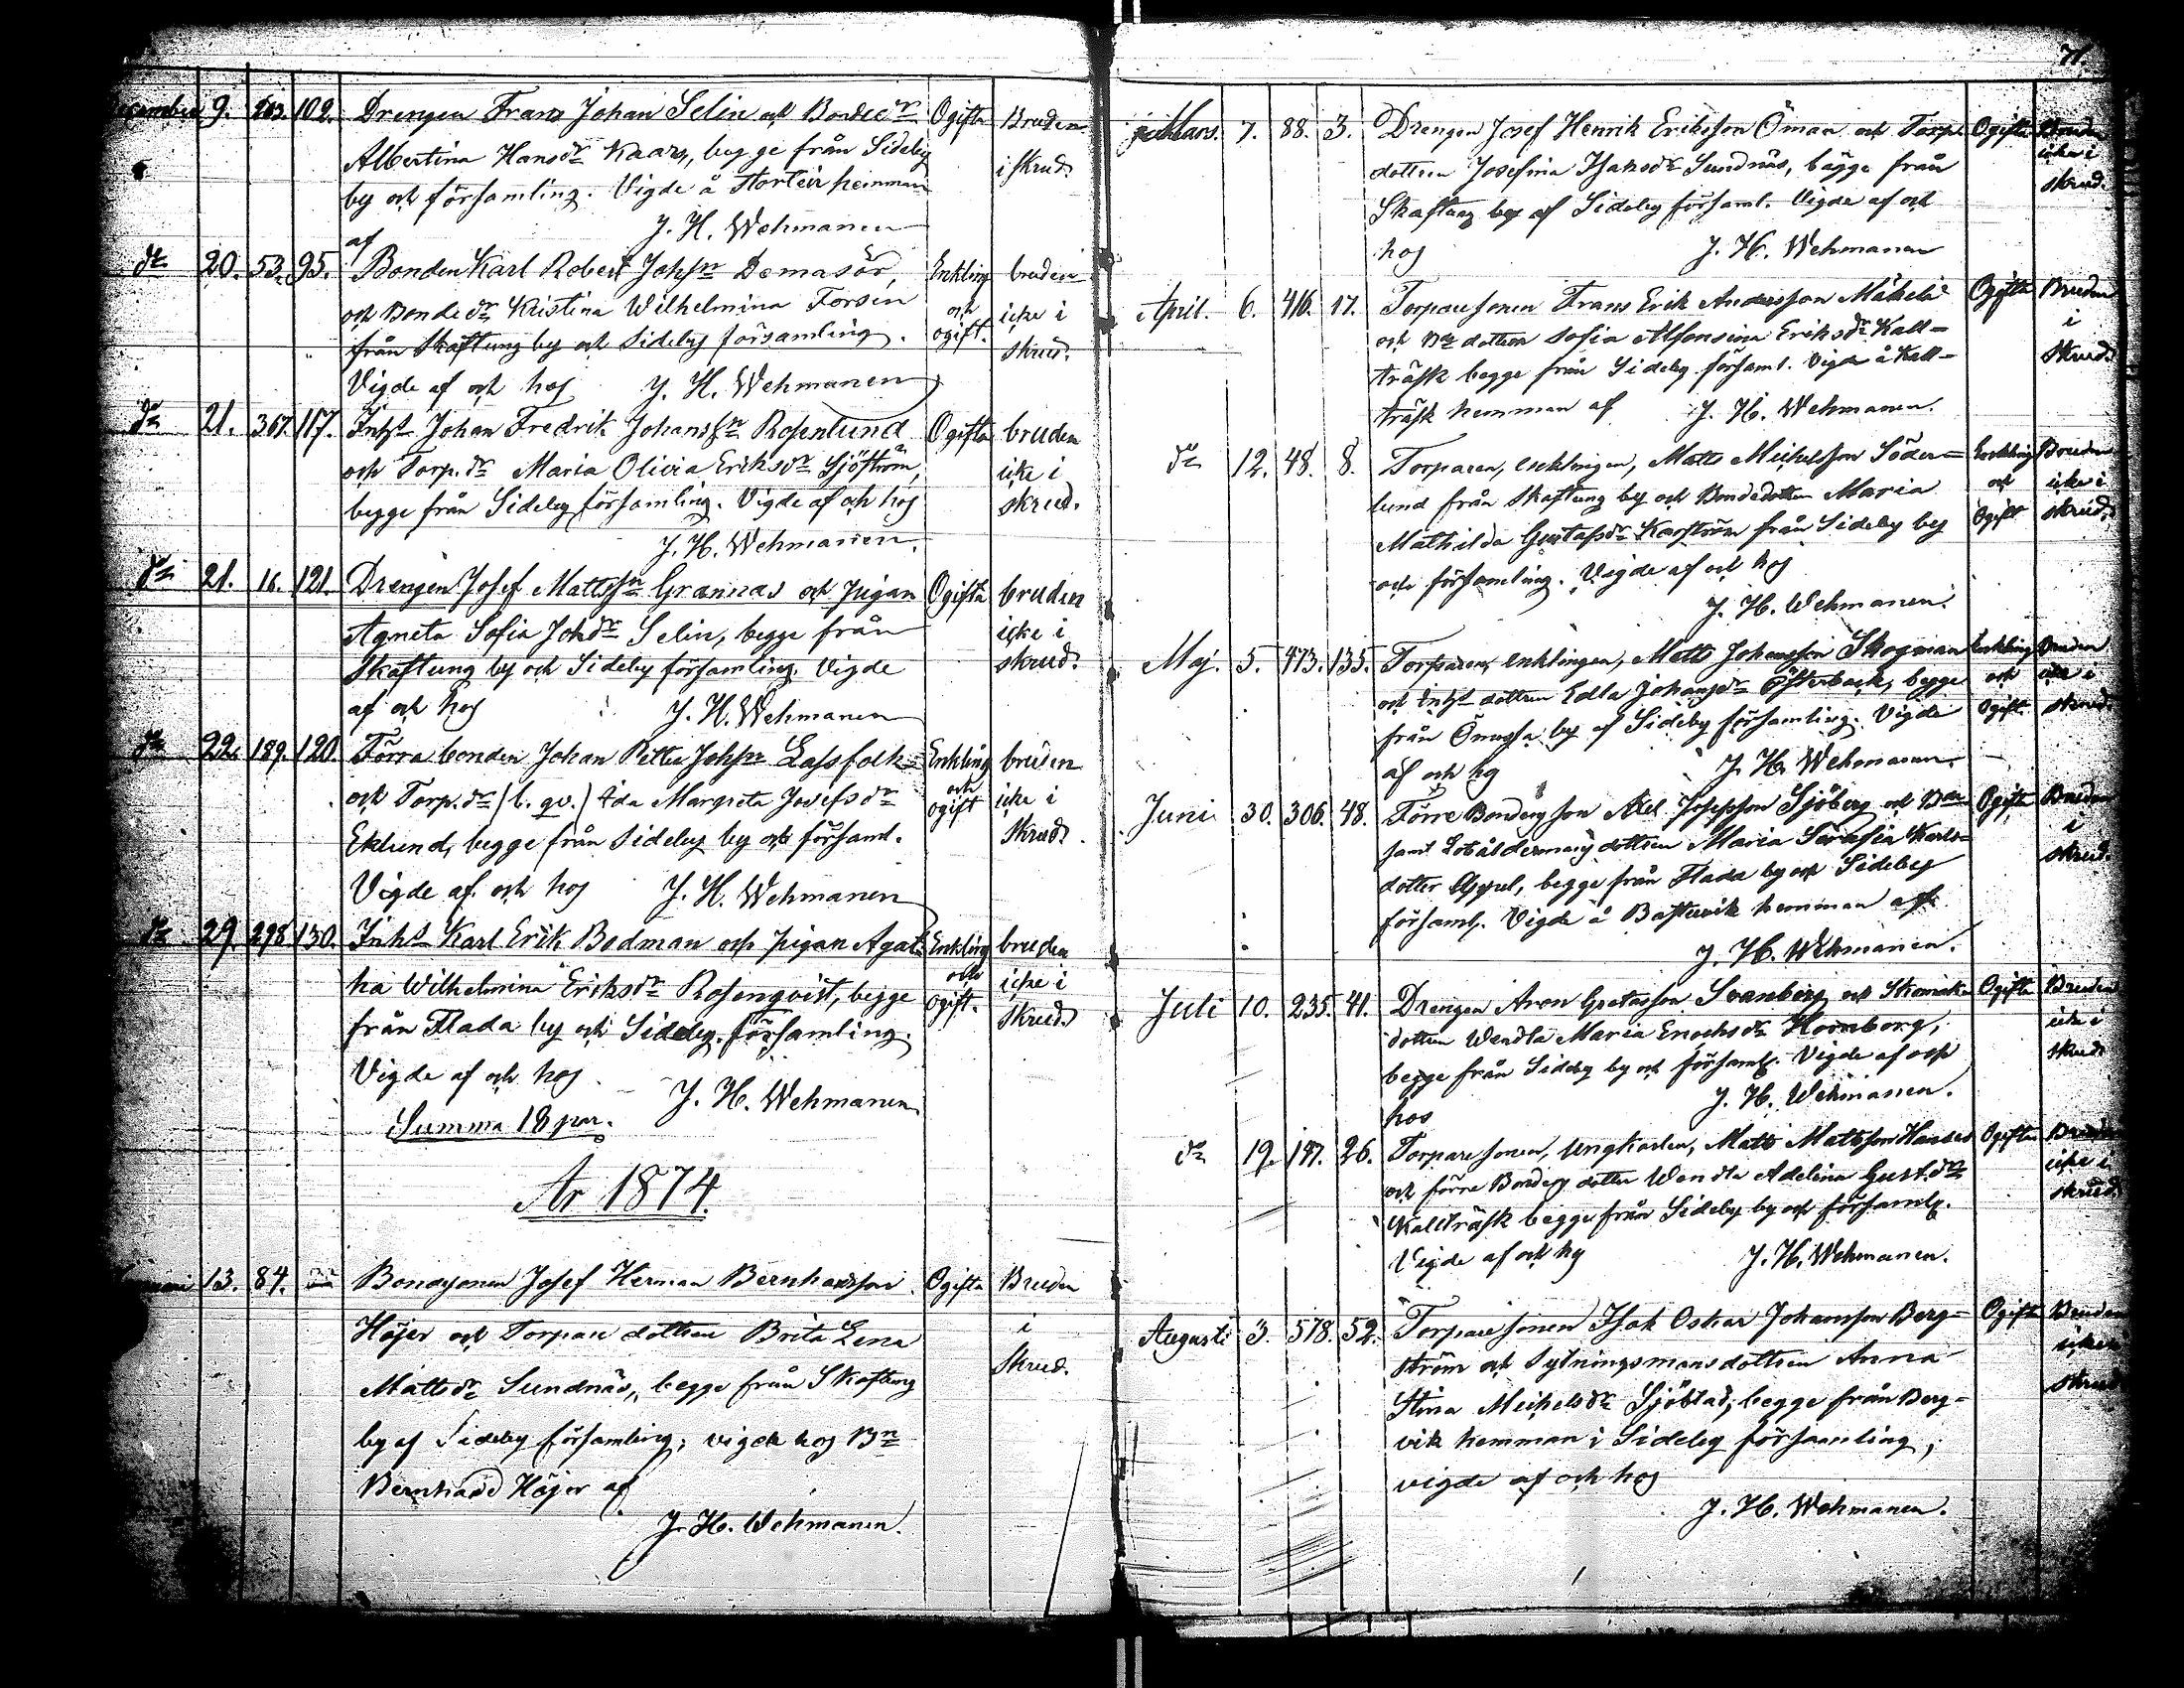 71.
9. 102. Drengen Frans Johan Selin och Bondedr Ogifta Bruden
Albertina Hansdr Kaars, begge från Sideby i skrud.
by och församling. Vigde å hemman
af J. H. Wehmanen
dr 20. 53. 95. Bonden Karl Robert Johsn Domasör, Enkling bruden
och Bondedr Kristina Wilhelmina Forsén och icke i
från Skaftung by och Sideby församling. ogift. skrud.
Vigde af och hos J. H. Wehmanen
dr 21. 367. 117. Inhs Johan Fredrik Johanssn Rosenlund Ogifta bruden
och Torp.dr Maria Olivia Eriksdr Sjöström, icke i
begge från Sideby församling. Vigde af och hos skrud.
J. H. Wehmanen.
dr 21. 16. 121. Drengen Josef Mattssn Grannas och pigan Ogifta bruden
Agneta Sofia Johdr Selin, begge från icke i
Skaftung by och Sideby församling. Vigde skrud.
af och hos J. H. Wehmanen
dr 22. 189. 120. Förra bonden Johan Petter Johsn Lassfolk Enkling bruden
och Torp.dr (b. qv.) Ida Margreta Josefsdr och ogift icke i
Eklund, begge från Sideby by och församl. skrud.
Vigde af och hos J. H. Wehmanen
dr 29. 298. 130. Inhs Karl Erik Bodman och pigan Agat- Enkling bruden
ha Wilhelmina Eriksdr Rosenqvist, begge och icke i
från Flada by och Sideby församling. Ogift. skrud.
Vigde af och hos J. H. Wehmanen
Summa 18 par.
År 1874.
13. 84. Bondesonen Josef Herman Bernhardsson Ogifta Bruden
Höjer och Torpare dottren Brita Lena i
Mattsdr Sundnäs, begge från Skaftung skrud.
by af Sideby församling; vigde hos Bn
Bernhard Höjer af
J. H. Wehmanen.
Mars. 7. 88. 3. Drengen Josef Henrik Eriksson Öman och Torp. Ogifta Bruden
dottren Josefina Isaksdr Sundnäs, bägge från icke i
Skaftung by af Sideby församl. Vigde af och skrud.
hos J. H. Wehmanen
April. 6. 416. 17. Torparesonen Frans Erik Andersson Mäkelä Ogifta Bruden
och dottren Sofia Alfonsina Eriksdr Kall- i
träsk begge från Sideby församl. Vigde å Kall- skrud.
träsk hemman af J. H. Wehmanen.
dr 12. 48. 8. Torparen, enklingen, Matts Michelsson Söder- Enkling Bruden
lund från Skaftung by och Bondedottren Maria och icke i
Mathilda Gustafsdr Karström från Sideby by Ogift skrud.
och församling. Vigde af och hos
J. H. Wehmanen.
Maj. 5. 473. 135. Torparen, enklingen, Matts Johansson Skogman Enkling Bruden
och Inhs dottren Edla Johansdr Österback, begge och icke i
från Ömossa by af Sideby församling. Vigde Ogift skrud.
af och hos J. H. Wehmanen.
Juni 30. 306. 48. Förre Bondens son Axel Josefsson Sjöberg och Ogifta Bruden
samt dottren Maria Serafia Karls- i
dotter Appel, begge från Flada by och Sideby skrud.
församl. Vigde å Bastuvik hemman af
J. H. Wehmanen.
Juli 10. 235. 41. Drengen Aron Svanberg och Skomakare Ogifta Bruden
dottren Wendla Maria Enochsdr Hornborg, icke i
begge från Sideby by och församl. Vigde af och skrud.
hos J. H. Wehmanen.
dr 19. 147. 26. Torparesonen, ungkarlen, Matts Mattsson Ogifta Bruden
och förre Bondens dotter Wendla Adelina Gust.dr icke i
Kallträsk begge från Sideby by och församlg. skrud.
Vigde af och hos J. H. Wehmanen.
Augusti 3. 578. 52. Torparesonen Isak Oskar Johansson Berg- Ogifta Bruden
ström och Sytningsmansdottren Anna icke i
Stina Michelsdr Sjöblad, begge från Berg- skrud
vik hemman i Sideby församling,
vigde af och hos
J. H. Wehmanen.